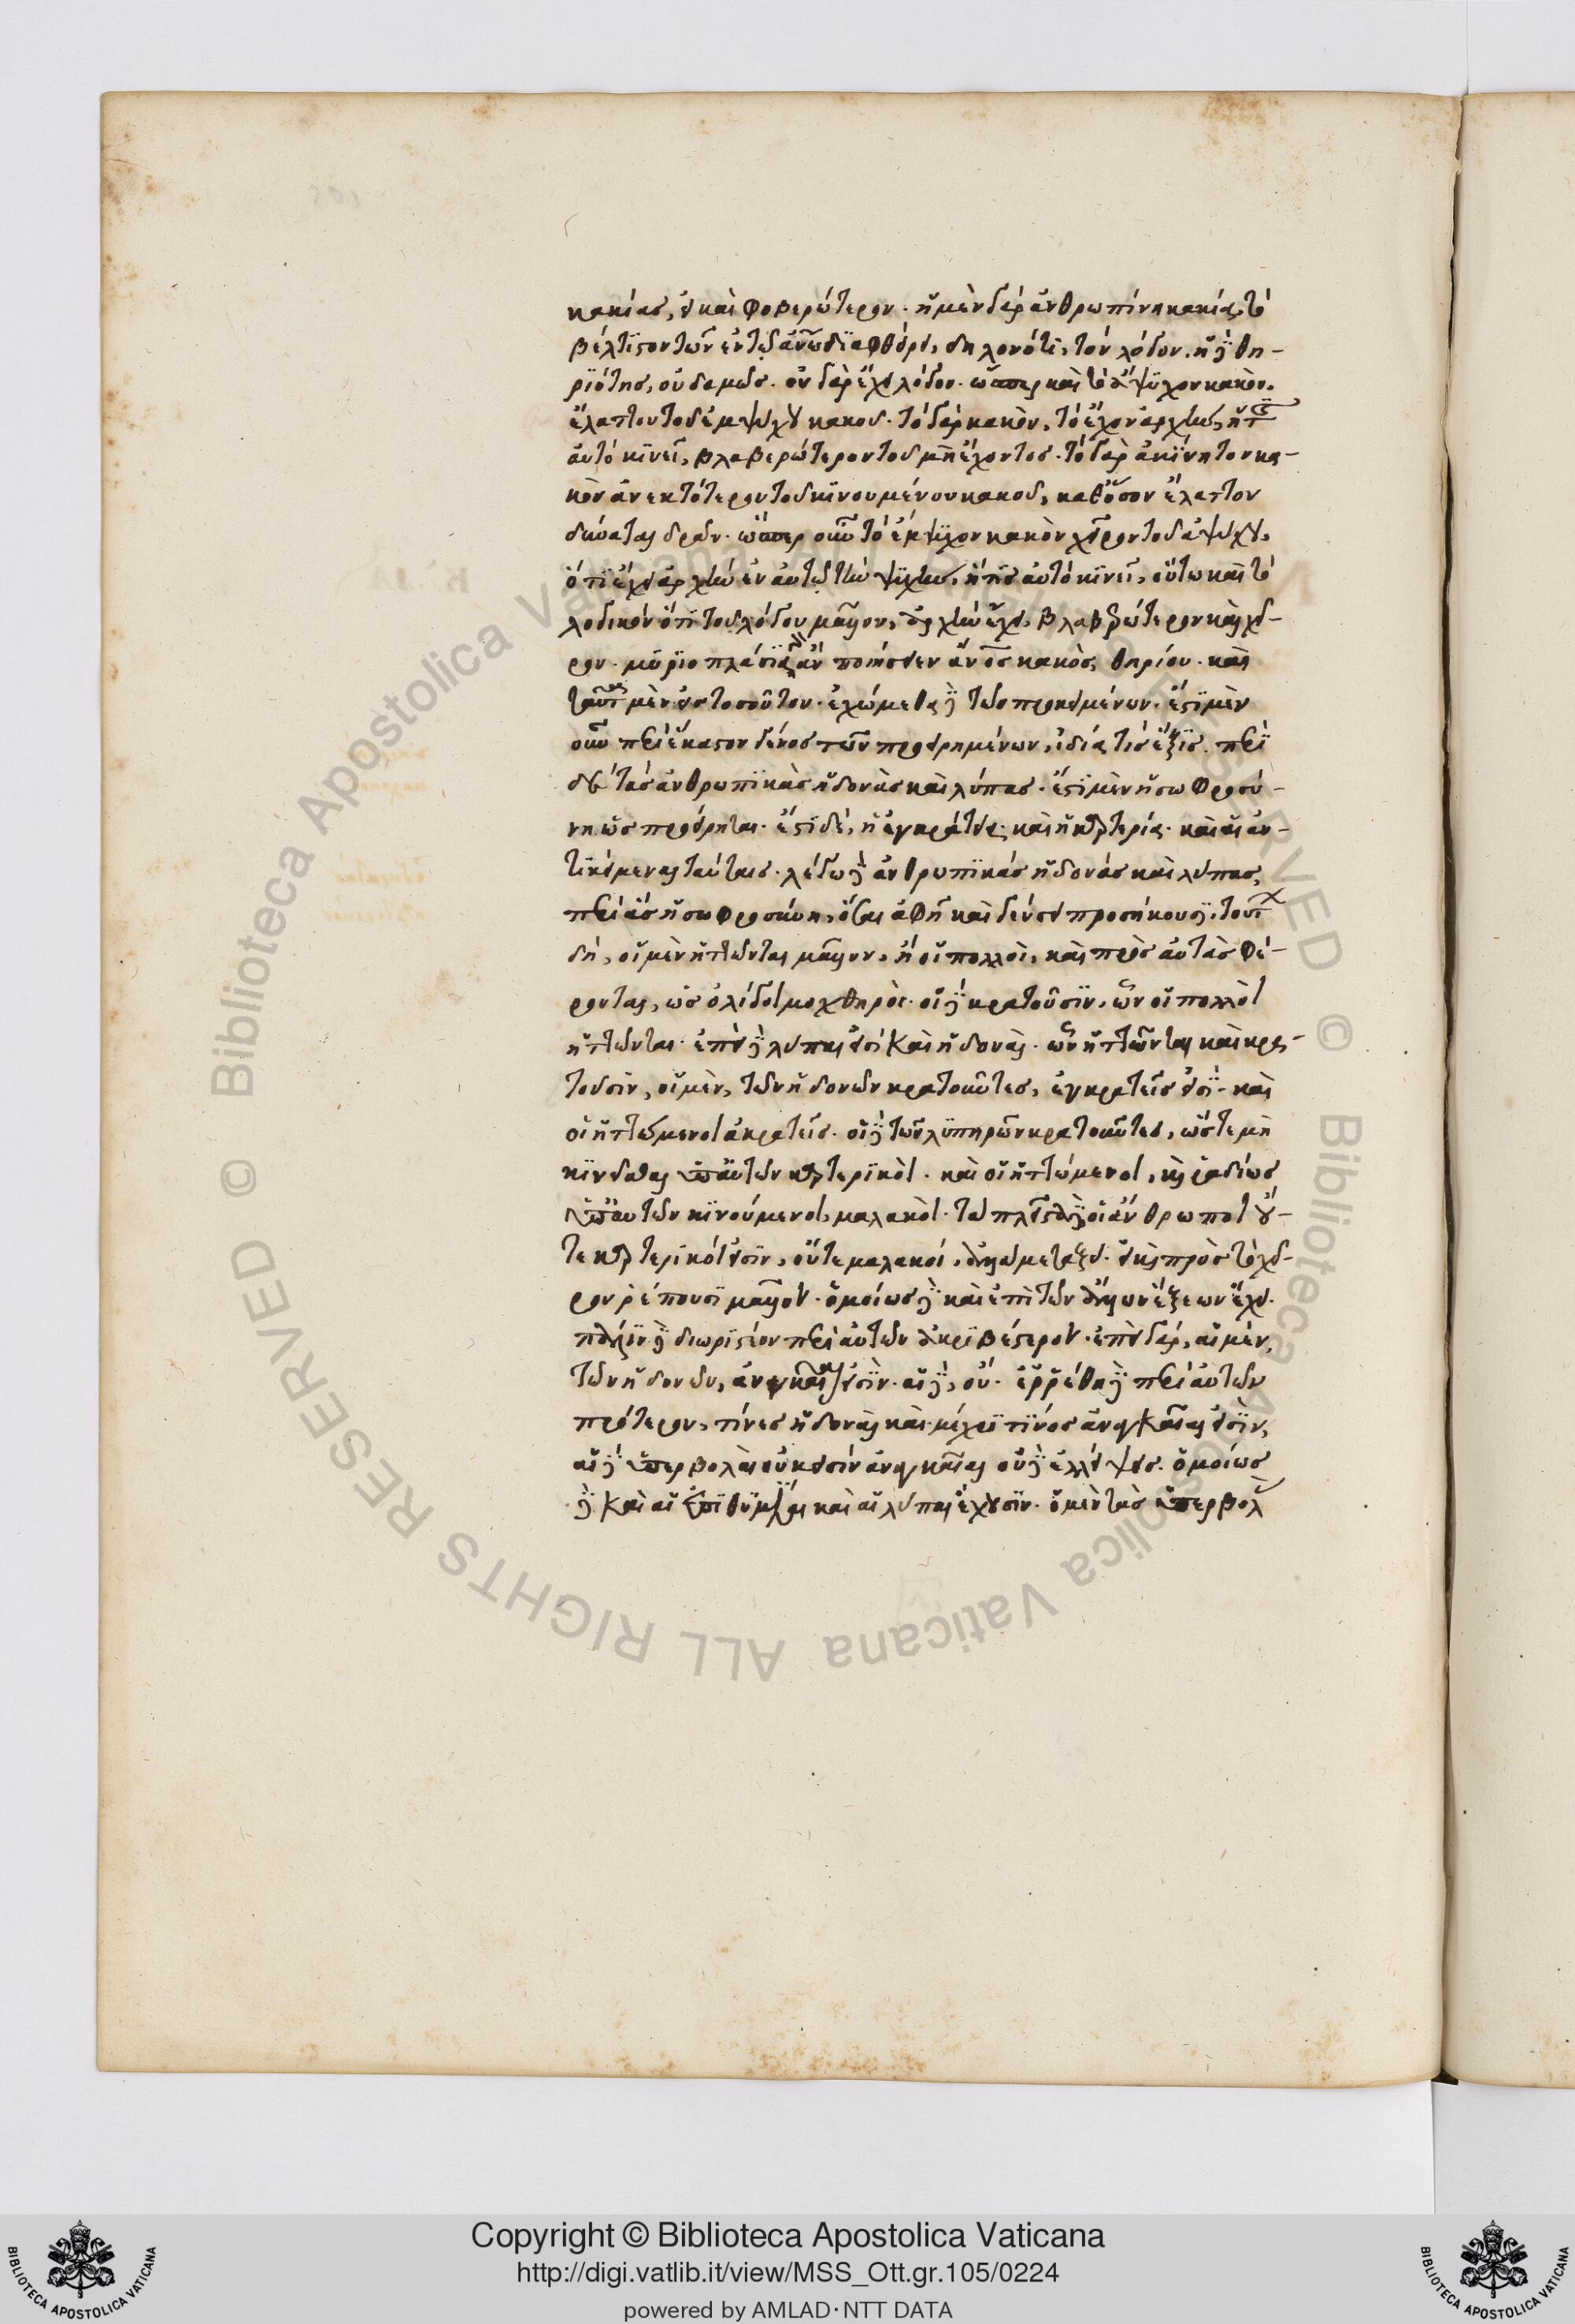 κακίας, εἰ καὶ φοβερώτερον· ἡ μὲν γὰρ ἀνθρωπίνη κακία, τὸ
βέλτιστον τῶν ἐν τῷ ἀνῳ διαφθείρει, δηλονότι, τὸν λόγον. ἡ δὲ θη-
ριότης, οὐδαμῶς. οὐ γὰρ ἔχει λόγον. ὥσπερ καὶ τὸ ἄψυχον κακὸν,
ἔλαττον τοῦ ἐμψύχου κακοῦ. τὸ γὰρ κακὸν, τὸ ἔχον ἀρχὴν, ἥτις
αὐτὸ κινεῖ, βλαβερώτερον τοῦ μὴ ἔχοντος. τὸ γὰρ ἀκίνητον κα-
κὸν ἀνεκτότερον τοῦ κινουμένου κακοῦ, καθόσον ἔλαττον
δύναται δρᾶν. ὥσπερ οὖν τὸ ἔμψυχον κακὸν χεῖρον τοῦ ἀψύχου,
ὅτι ἔχει ἀρχὴν ἐν αὐτῷ τὴν ψυχὴν, ἥτις αὐτὸ κινεῖ, οὕτω καὶ τὸ
λογικὸν ὅτι τοῦ λόγου μᾶλλον, ἀρχὴν ἔχει, βλαβερώτερον καὶ χεῖ-
ρον. μυριοπλάσια γὰρ ἂν ποιήσειεν ἄνος κακὸς, θηρίου. καὶ
ταῦτα μὲν εἰς τοσοῦτον. ἐχώμεθα δὲ τῶν προκειμένων. ἔστι μὲν
οὖν περὶ ἕκαστον γένος τῶν προειρημένων, ἰδία τις ἕξις. περὶ
δὲ τὰς ἀνθρωπικὰς ἡδονὰς καὶ λύπας. ἔστι μὲν ἡ σωφροσύ-
νη ὡς προείρηται. ἔστι δὲ, ἡ ἐγκράτεια, καὶ ἡ καρτερία. καὶ αἱ ἀν-
τικείμεναι ταύταις. λέγω δὲ ἀνθρωπικὰς ἡδονὰς καὶ λύπας,
περὶ ἃς ἡ σωφροσύνη, ὅσαι ἁφῇ καὶ γεύσει προσήκουσι. τούτων
δὴ, οἱ μὲν ἡττῶνται μᾶλλον, ἢ οἱ πολλοὶ, καὶ πρὸς αὐτὰς φέ-
ρονται, ὡς ὀλίγοι μοχθηρὸι. οἱ δὲ κρατοῦσιν, ὧν οἱ πολλοὶ
ἡττῶνται. ἐπεὶ δὲ λύπαι εἰσὶ καὶ ἡδοναὶ. ὧν ἡττῶνται καὶ κρα-
τοῦσιν, οἱ μὲν, τῶν ἡδονῶν κρατοῦντες, ἐγκρατεῖς εἰσὶ. καὶ
οἱ ἡττώμενοι ἀκρατεῖς. οἱ δὲ τῶν λυπηρῶν κρατοῦντες, ὥστε μὴ
κινεῖσθαι ὑπ' αὐτῶν καρτερικοὶ. καὶ οἱ ἡττώμενοι, καὶ ῥαδίως
ὑπ' αὐτῶν κινούμενοι, μαλακοὶ. τὸ πλεῖστον δὲ οἱ ἄνθρωποι οὔ-
τε καρτερικοί εἰσιν, οὔτε μαλακοί, ἀλλὰ μεταξὺ. εἰ καὶ πρὸς τὸ χεῖ-
ρον ῥέπουσι μᾶλλον. ὁμοίως δὲ καὶ ἐπὶ τῶν ἄλλων ἕξεων ἔχει.
πάλιν δὲ διωριστέον περὶ αὐτῶν ἀκριβέστερον. ἐπεὶ γὰρ, αἱ μὲν,
τῶν ἡδονῶν, ἀναγκαῖαί εἰσιν. αἱ δὲ, οὐ. ἐῤῥέθη δὲ περὶ αὐτῶν
πρότερον, τίνες ἡδοναὶ καὶ μέχρι τίνος ἀναγκαῖαι εἰσὶν,
αἱ δὲ ὑπερβολαὶ οὐκ εἰσὶν ἀναγκαῖαι οὐδὲ ἐλλείψεις. ὁμοίως
δὲ καὶ αἱ ἐπιθυμίαι καὶ αἱ λύπαι ἔχουσιν. ὁ μὲν τὰς ὑπερβολὰς
Copyright © Biblioteca Apostolica Vaticana
http://digi.vatlib.it/view/MSS_Ott.gr.105/0224
powered by AMLAD·NTT DATA
BIBLIOTECA APOSTOLICA VATICANA
BIBLIOTECA APOSTOLICA VATICANA
© Biblioteca Apostolica Vaticana ALL RIGHTS RESERVED © Biblioteca Apostolica Vaticana ALL RIGHTS RESERVED